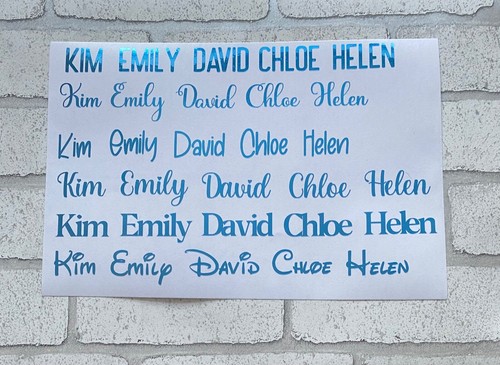 KIM EMILY DAVID CHLOE HELEN
Kim Emily David Chloe Helen
Kim emily David Chloe Helen
Kim Emily David Chloe Helen
Kim Emily David Chloe Helen
Kim Emily David Chloe Helen